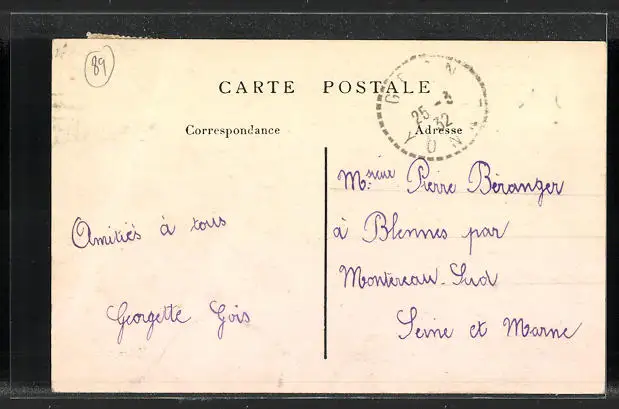 89
CARTE POSTALE
Correspondance
Adresse
25 - 3
32
YONNE
Msieur Pierre Béranger
à Blennes par
Montereau-Sud
Seine et Marne
Amitiés à tous
Georgette Gois